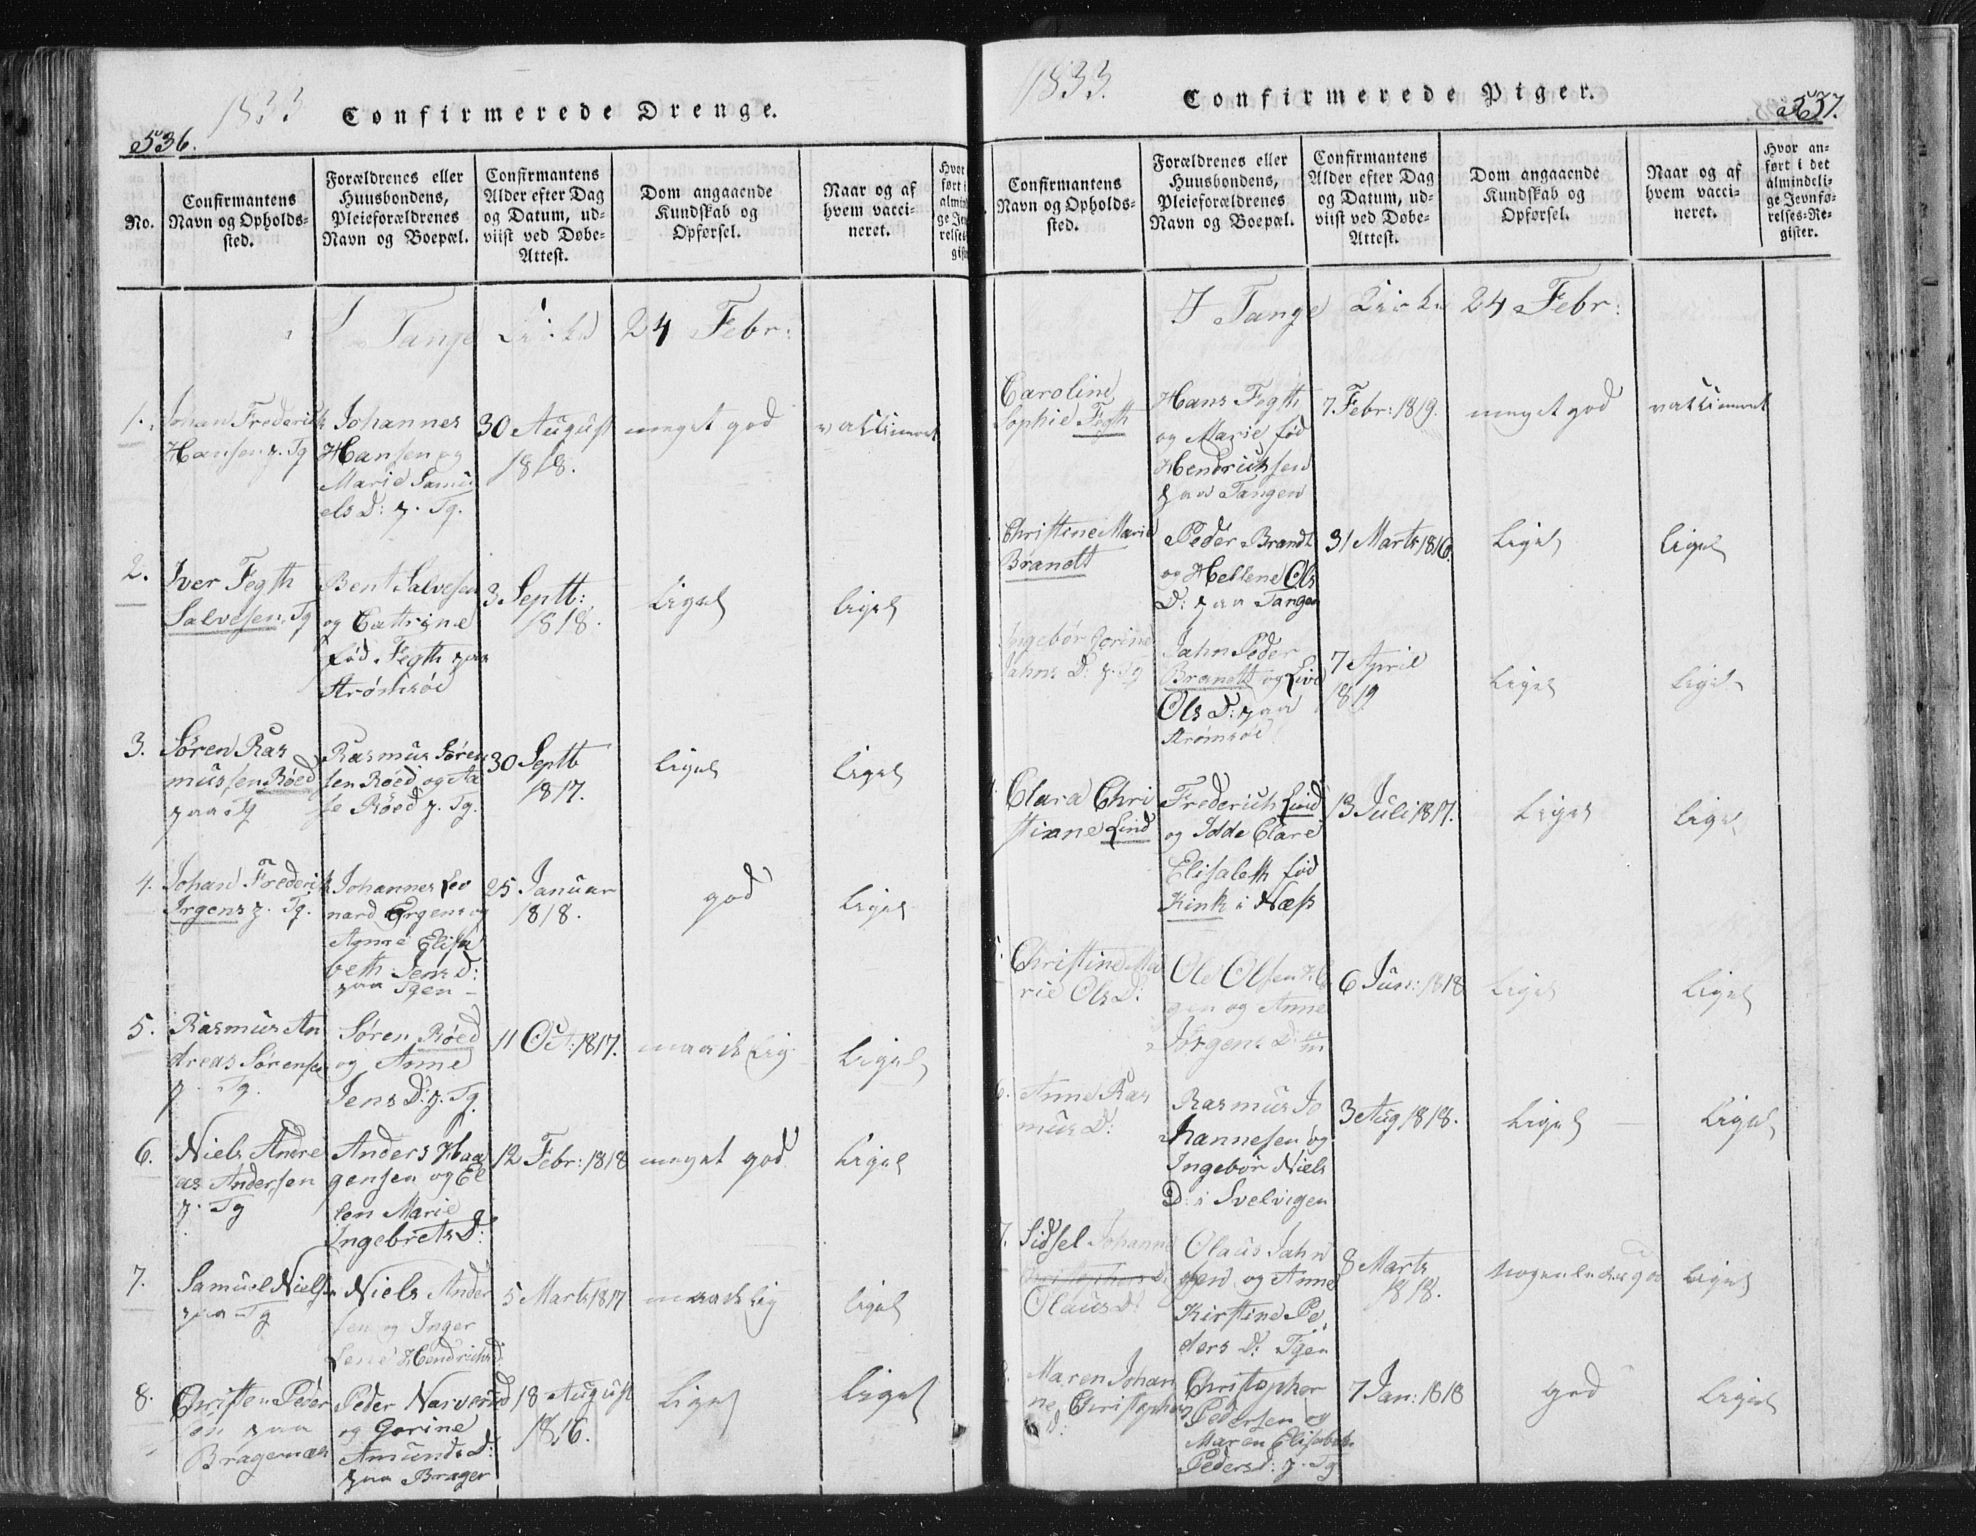 1833
Confirmerede Drenge.
536.
No.
Confirmantens
Navn og Opholds-
sted.
Forældrenes eller
Huusbondens,
Pleieforældrenes
Navn og Boepæl.
Confirmantens
Alder efter Dag
og Datum, ud-
viist ved Døbe-
Attest.
Dom angaaende
Kundskab og
Opførsel.
Naar og af
hvem vacci-
neret.
Tange Kirke 24 Febr:
1.
Johan Frederik
Hansen p. Tg
Johannes
Hansen og
Marie Samu
els D: p. Tg.
30 August
1818.
meget god
vaccineret
2.
Iver Fegth
Salvesen, Tg
Bent Salvesen
og Cathrine
fød Fegth paa
Strømsøe
3 Septb:
1818.
Ligel
Ligel
3.
Søren Ras
mussen Röed
paa Tg
Rasmus Sören
sen Röed og Aa
se Röed p. Tg.
30 Septb
1817.
Ligel
Ligel
4.
Johan Frederik
Irgens p. Tg.
Johannes Leo
nard Irgens og
Anne Elisa
beth Jens D:
paa Tgen
25 Januar
1818.
god
Ligel
5.
Rasmus An
dreas Sörensen
p. Tg.
Søren Röed
og Anne
Jens D: p. Tg.
11 Oct: 1817.
maadelig
Ligel
6.
Niels Andre
as Andersen
p. Tg
Anders Haa
gensen og El
len Marie
Ingebrets D:
12 Febr: 1818
meget god
Ligel
7.
Samuel Nielsen
paa Tg
Niels Ander
sen og Inger
Lene Hendrichs D
5 Marts 1817
maadelig
Ligel
8.
Christen Peder
sen paa
Bragernæs
Peder Narverud
og Gorine
Amunds D:
paa Brager
18 August
1816.
Ligel
Ligel
1833.
Confirmerede Piger.
537.
Confirmantens
Navn og Opholds-
sted.
Forældrenes eller
Huusbondens,
Pleieforældrenes
Navn og Boepæl.
Confirmantens
Alder efter Dag
og Datum, ud-
viist ved Døbe-
Attest.
Dom angaaende
Kundskab og
Opførsel.
Naar og af
hvem vacci-
neret.
Hvor an-
ført i det
almindeli-
ge Jevnfø-
relses-Re-
gister.
I Tange Kirke 24 Febr:
Caroline
Sophie Fegth
Hans Fegth
og Marie fød
Hendrichsen
paa Tangen
7 Febr: 1819.
meget god
vaccineret
Christine Marie
Brandt
Peder Brandt
og Hellene Ols
D: paa Tangen
31 Marts 1816.
Ligel
Ligel
Ingebör Gorine
Jahns D: p. Tg
Jahn Peder
Brandt og Live
Ols D: paa
Strömsöe
7 April
1819
Ligel
Ligel
Clara Chri
stiane Lind
Frederich Lind
og Idde Clare
Elisabeth fød
Kink i Næss
13 Juli 1817.
Ligel
Ligel
Christine Ma
rie Ols D:
Ole Olsen
gen og Anne
Jörgens D:
6 Jun: 1818
Ligel
Ligel
6.
Anne Ras
mus D:
Rasmus Jo
hannesen og
Ingebör Niels
D: i Svelvigen
3 Aug 1818.
Ligel
Ligel
7.
Sidsel Johanne
Olaus D:
Olaus Jahn
sen og Anne
Kirstine Pe
ders D: Tgen
8 Marts
1818.
nogenledes god
Ligel
Maren Johan
ne Christophers
D:
Christopher
Pedersen og
Maren Elisabeth
Peders D: p. Tg
7 Jan: 1818
god
Ligel